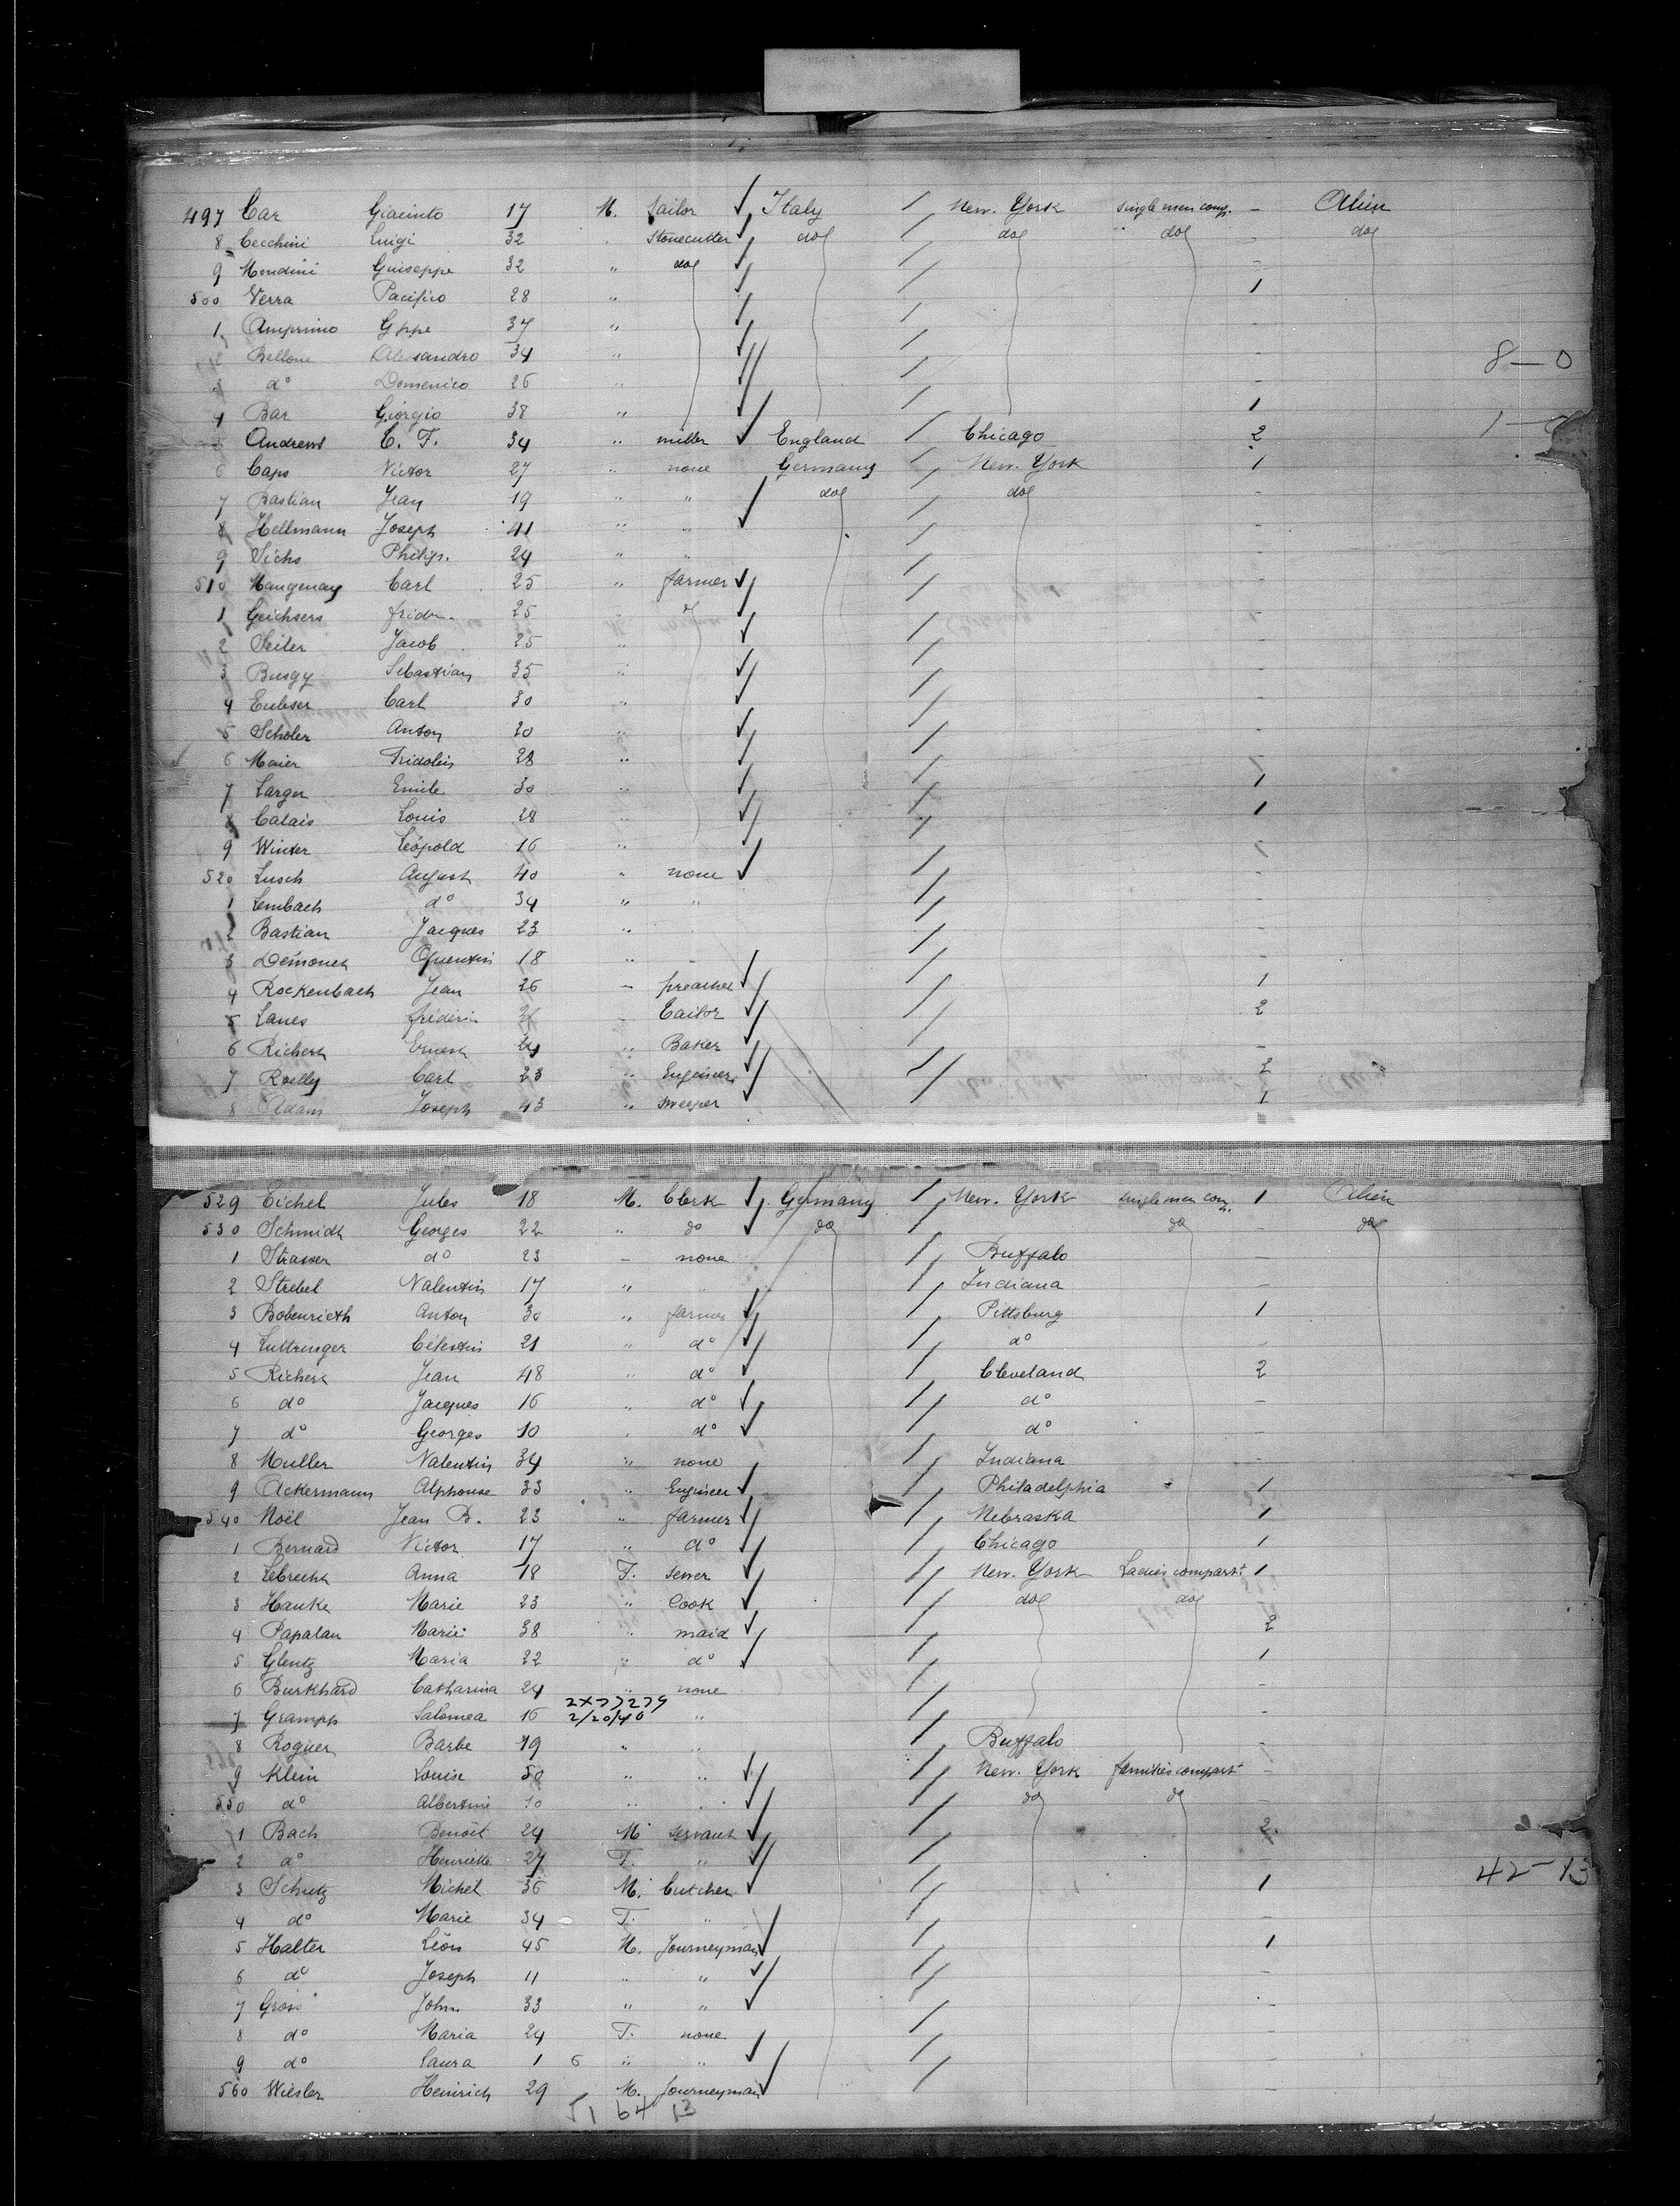 497 Car Giacinto 17 M. Sailor Italy New. York single men comp. - Alien
8 Cecchini Luigi 32 Stonecutter do do do - do
9 Mondini Guiseppe 32 " do -
500 Verra Pacifico 28 " 1
1 Amprimo Gppe 37 " -
Bellone Alessandro 34 " - 8-0
do Domenico 26 " -
4 Bar Giorgio 38 " 1
Andrews C. F. 34 " miller England Chicago 2
6 Caps Victor 27 " none Germany New. York 1
7 Bastian Jean 19 " " do do -
8 Hellmann Joseph 41 " " -
9 Sichs Philip. 24 " " -
510 Mangenay Carl 25 " farmer -
1 Geichsers fridn. 25 " d -
2 Seiler Jacob 25 " -
3 Busgy Sebastian 35 " -
4 Eubser Carl 30 " -
5 Scholer Anton 20 " -
6 Maier Fridolin 28 " -
7 Larger Emile 30 " 1
8 Calais Louis 28 " 1
9 Winter Léopold 16 " -
520 Lusch August 40 " none -
1 Lembach do 34 " " -
2 Bastian Jacques 23 " -
3 Demonch Quentin 18 " -
4 Rockenbach Jean 26 - preacher 1
5 Lanes frédéric Tailor 2
6 Richert Ernest 24 " Baker -
7 Roelly Carl 23 " Engineer 2
8 Adam Joseph 43 " sweeper 1
529 Eichel Jules 18 M. Clerk Germany New. York single men com. 1 Alien
530 Schmidt Georges 22 " do do do - do
1 Strasser do 23 - none Buffalo -
2 Strebel Valentin 17 " " Indiana -
3 Bobenrieth Anton 30 " farmer Pittsburg 1
4 Luttringer Célestin 21 " do do -
5 Richert Jean 48 " do Cleveland 2
6 do Jacques 16 " do do -
7 do Georges 10 " do do -
8 Muller Valentin 34 " none Indiana -
9 Ackermann Alphonse 33 " Engineer Philadelphia 1
540 Noël Jean B. 23 " farmer Nebraska 1
1 Bernard Victor 17 " do Chicago 1
2 Lebrecht Anna 18 F. sewer New. York Ladies compart. 1
3 Hauke Marie 23 " Cook do do -
4 Papalau Marie 38 " maid 2
5 Glentz Maria 22 " do 1
6 Burkhard Catharina 24 " none -
7 Gramph Salomea 16 2/20/40 " -
8 Roguer Barbe 19 " " Buffalo -
9 Klein Louise 50 " " New. York families compart -
550 do Albertine 10 " " do do -
1 Bach Benoît 24 M servant 2
2 do Henriette 27 F. " - 42-13
3 Schutz Michel 36 M. butcher 1
4 do Marie 34 F. " -
5 Halter Léon 45 M. Journeyman 1
6 do Joseph 11 " " -
7 Gross John 33 " " -
8 do Maria 24 F. none -
9 do Laura 1 6 " " -
560 Wiesler Heinrich 29 M. Journeyman -
51 64 13